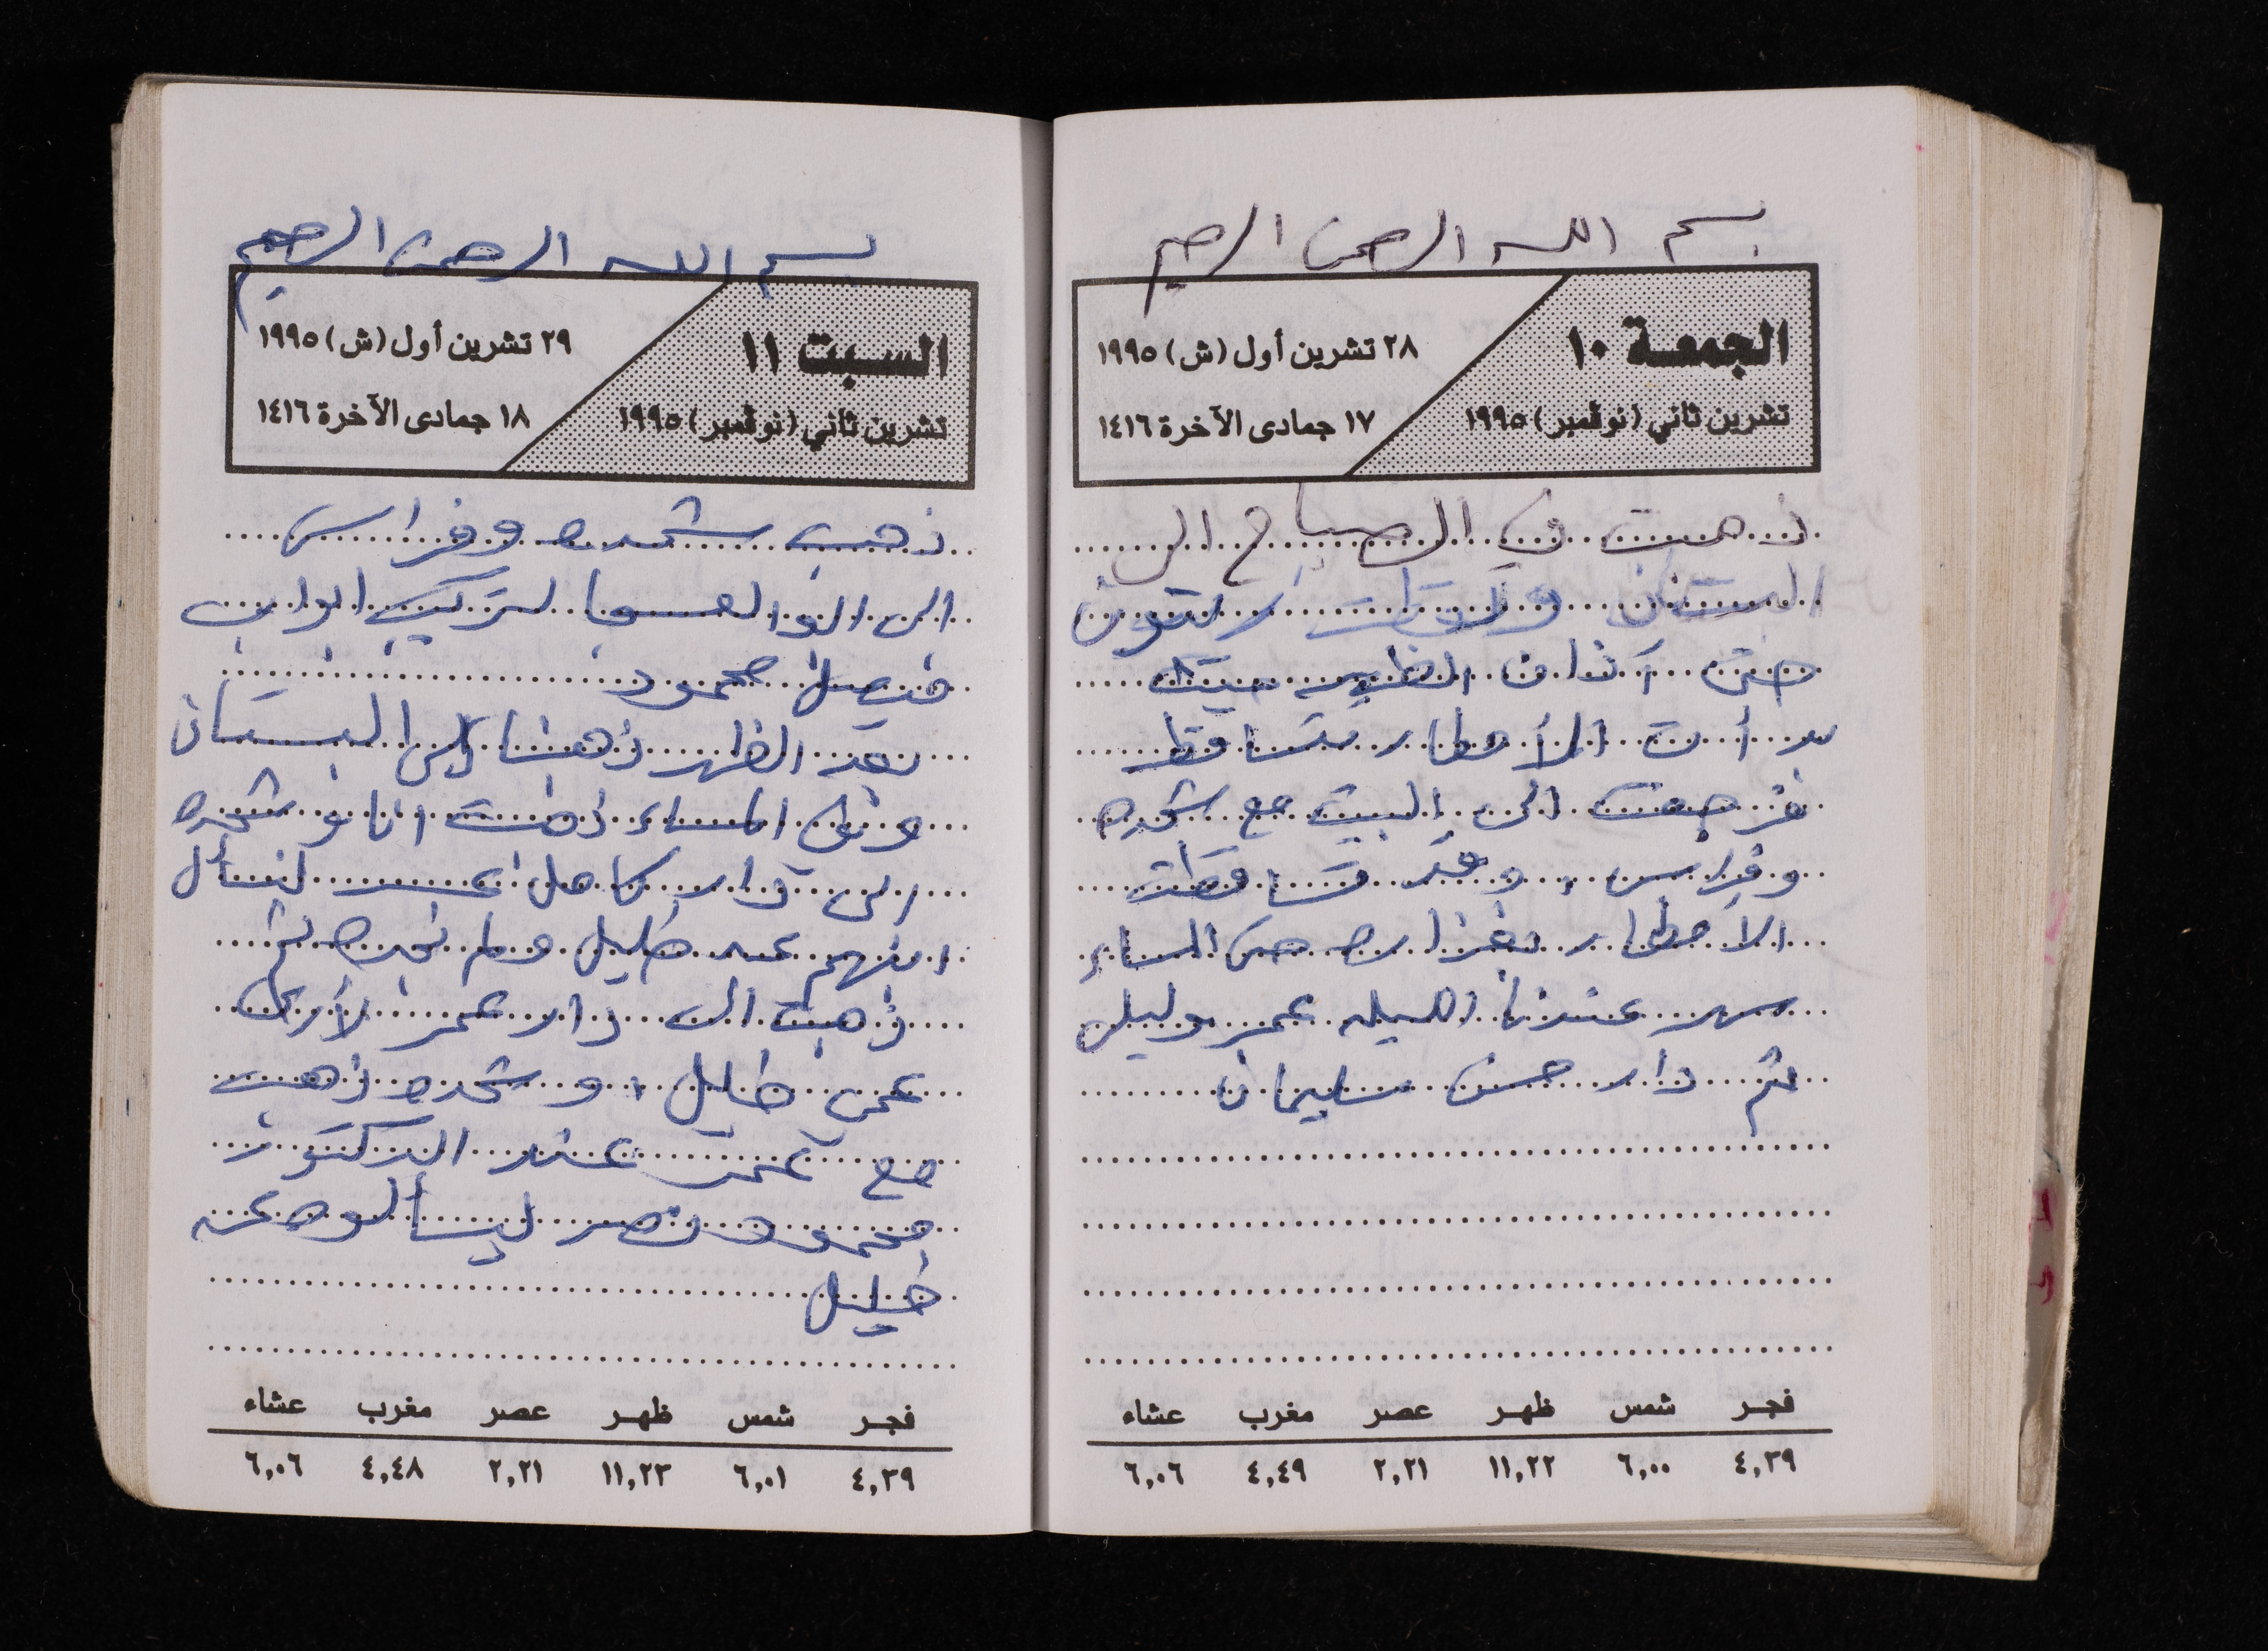 بسم الله الرحمن الرحيم
الجمعة ١٠
تشرين ثاني (نوفمبر) ١٩٩٥
٢٨ تشرين أول (ش) ١٩٩٥
١٧ جمادى الآخرة ١٤١٦
ذهبت في الصباح الى
البستان الزيتون
حتى آذان الظهر حيث
بدأت الأمطار تتساقط
فرجعت الى البيت مع شحده
وفراس، وقد تساقطت
الامطار بغزاره حتى المساء
سهر عندنا الليله عمر وليلى
ثم دار حسن سليمان
فجر شمس ظهر عصر مغرب عشاء
٤,٣٩ ٦,٠٠ ١١,٢٢ ٢,٢١ ٤,٤٩ ٦,٠٦
بسم الله الرحمن الرحيم
السبت ١١
تشرين ثاني (نوفمبر) ١٩٩٥
٢٩ تشرين أول (ش) ١٩٩٥
١٨ جمادى الآخرة ١٤١٦
ذهب شحده وفراس
الى لتركيب ابواب
فيصل محمود
بعد الظهر ذهبنا الى البستان
وفي المساء ذهبت انا وشحده
الى دار كامل لنسأل
ابنهم عن خليل ولم نجده ثم
ذهبت الى دار عمر لأسأل
عن خليل، وشحده ذهب
مع عمر عند الدكتور
محمود نصر ليسألوه عن
خليل
فجر شمس ظهر عصر مغرب عشاء
٤,٣٩ ٦,٠١ ١١,٢٣ ٢,٢١ ٤,٤٨ ٦,٠٦